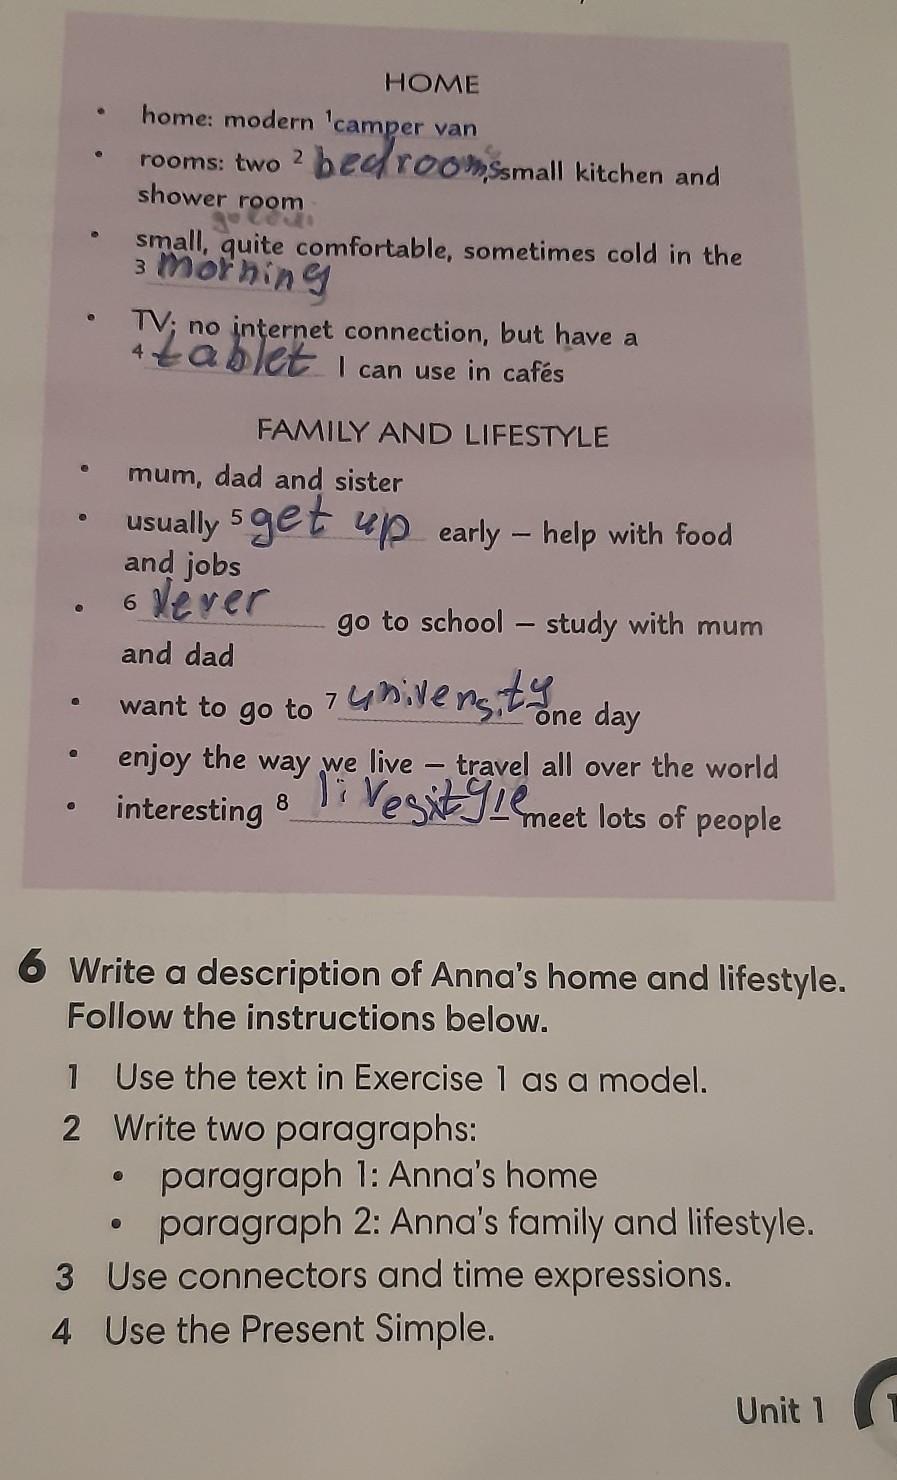 HOME
• home: modern ¹camper van
• rooms: two ² bedrooms, small kitchen and
shower room
• small, quite comfortable, sometimes cold in the
³ morning
• TV; no internet connection, but have a
⁴ tablet I can use in cafés
FAMILY AND LIFESTYLE
• mum, dad and sister
• usually ⁵ get up early – help with food
and jobs
• ⁶ Never go to school – study with mum
and dad
• want to go to ⁷ university one day
• enjoy the way we live – travel all over the world
• interesting ⁸ – meet lots of people
6 Write a description of Anna's home and lifestyle.
Follow the instructions below.
1 Use the text in Exercise 1 as a model.
2 Write two paragraphs:
• paragraph 1: Anna's home
• paragraph 2: Anna's family and lifestyle.
3 Use connectors and time expressions.
4 Use the Present Simple.
Unit 1